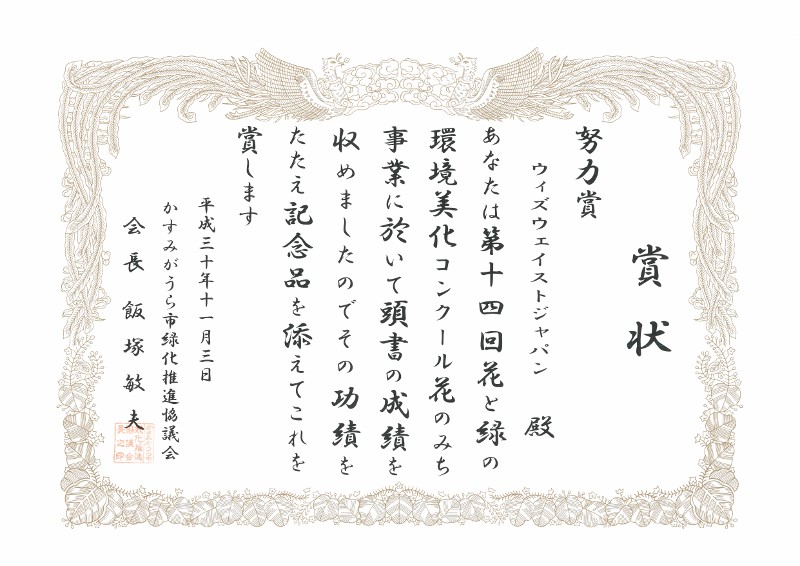 賞状
努力賞
ウィズウェイストジャパン 殿
あなたは第十四回花と緑の
環境美化コンクール花のみち
事業に於いて頭書の成績を
収めましたのでその功績を
たたえ記念品を添えてこれを
賞します
平成三十年十一月三日
かすみがうら市緑化推進協議会
会長 飯塚敏夫